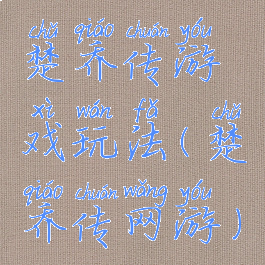 chǔ qiáo chuán yóu
楚乔传游
xì wán fǎ chǔ
戏玩法(楚
qiáo chuán wǎng yóu
乔传网游)